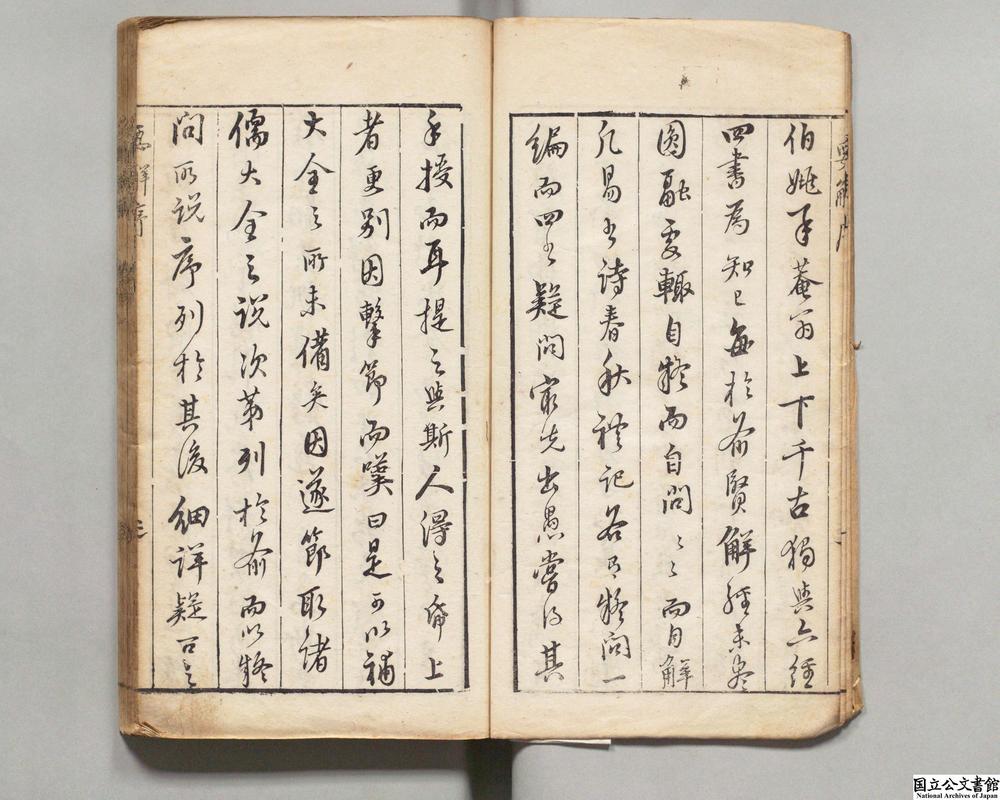 伯姚承菴翁上下千古獨與六經
四書為知己每於前賢解經未盡
圓融處輒自疑而自問〻〻而自解
凡易書詩春秋禮記各有疑問一
編而四書疑問最先出愚嘗得其
手授而耳提之與斯人得之帋上
者更別因擊節而嘆曰是可以補
大全之所未備矣因遂節取諸
儒大全之說次第列於前而以疑
問所說序列於其後細詳疑
國立公文書館
National Archives of Japan